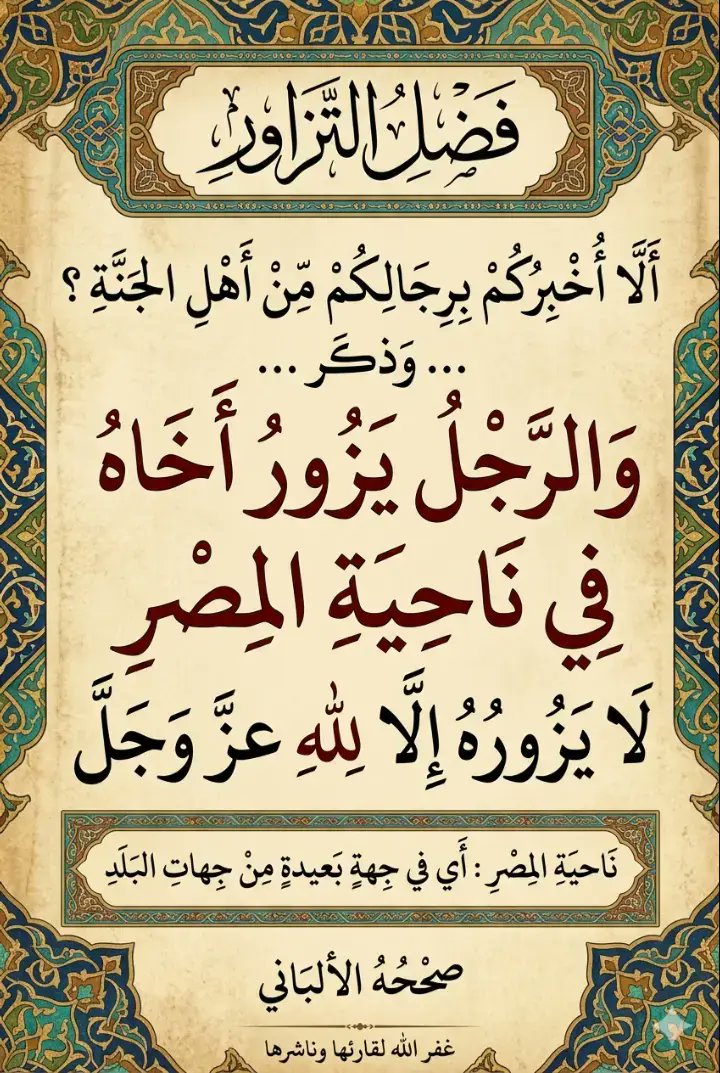 فَضْلُ التَّزَاوُرِ
أَلَّا أُخْبِرُكُمْ بِرِجَالِكُمْ مِّنْ أَهْلِ الجَنَّةِ ؟
... وَذكَر ...
وَالرَّجْلُ يَزُورُ أَخَاهُ
فِي نَاحِيَةِ المِصْرِ
لَا يَزُورُهُ إِلَّا لِلهِ عزَّ وَجَلَّ
نَاحيَةِ المِصْرِ : أَي في جِهةٍ بَعيدةٍ مِنْ جِهاتِ البَلَدِ
صحْحُهُ الألبَاني
غفر الله لقارئها وناشرها